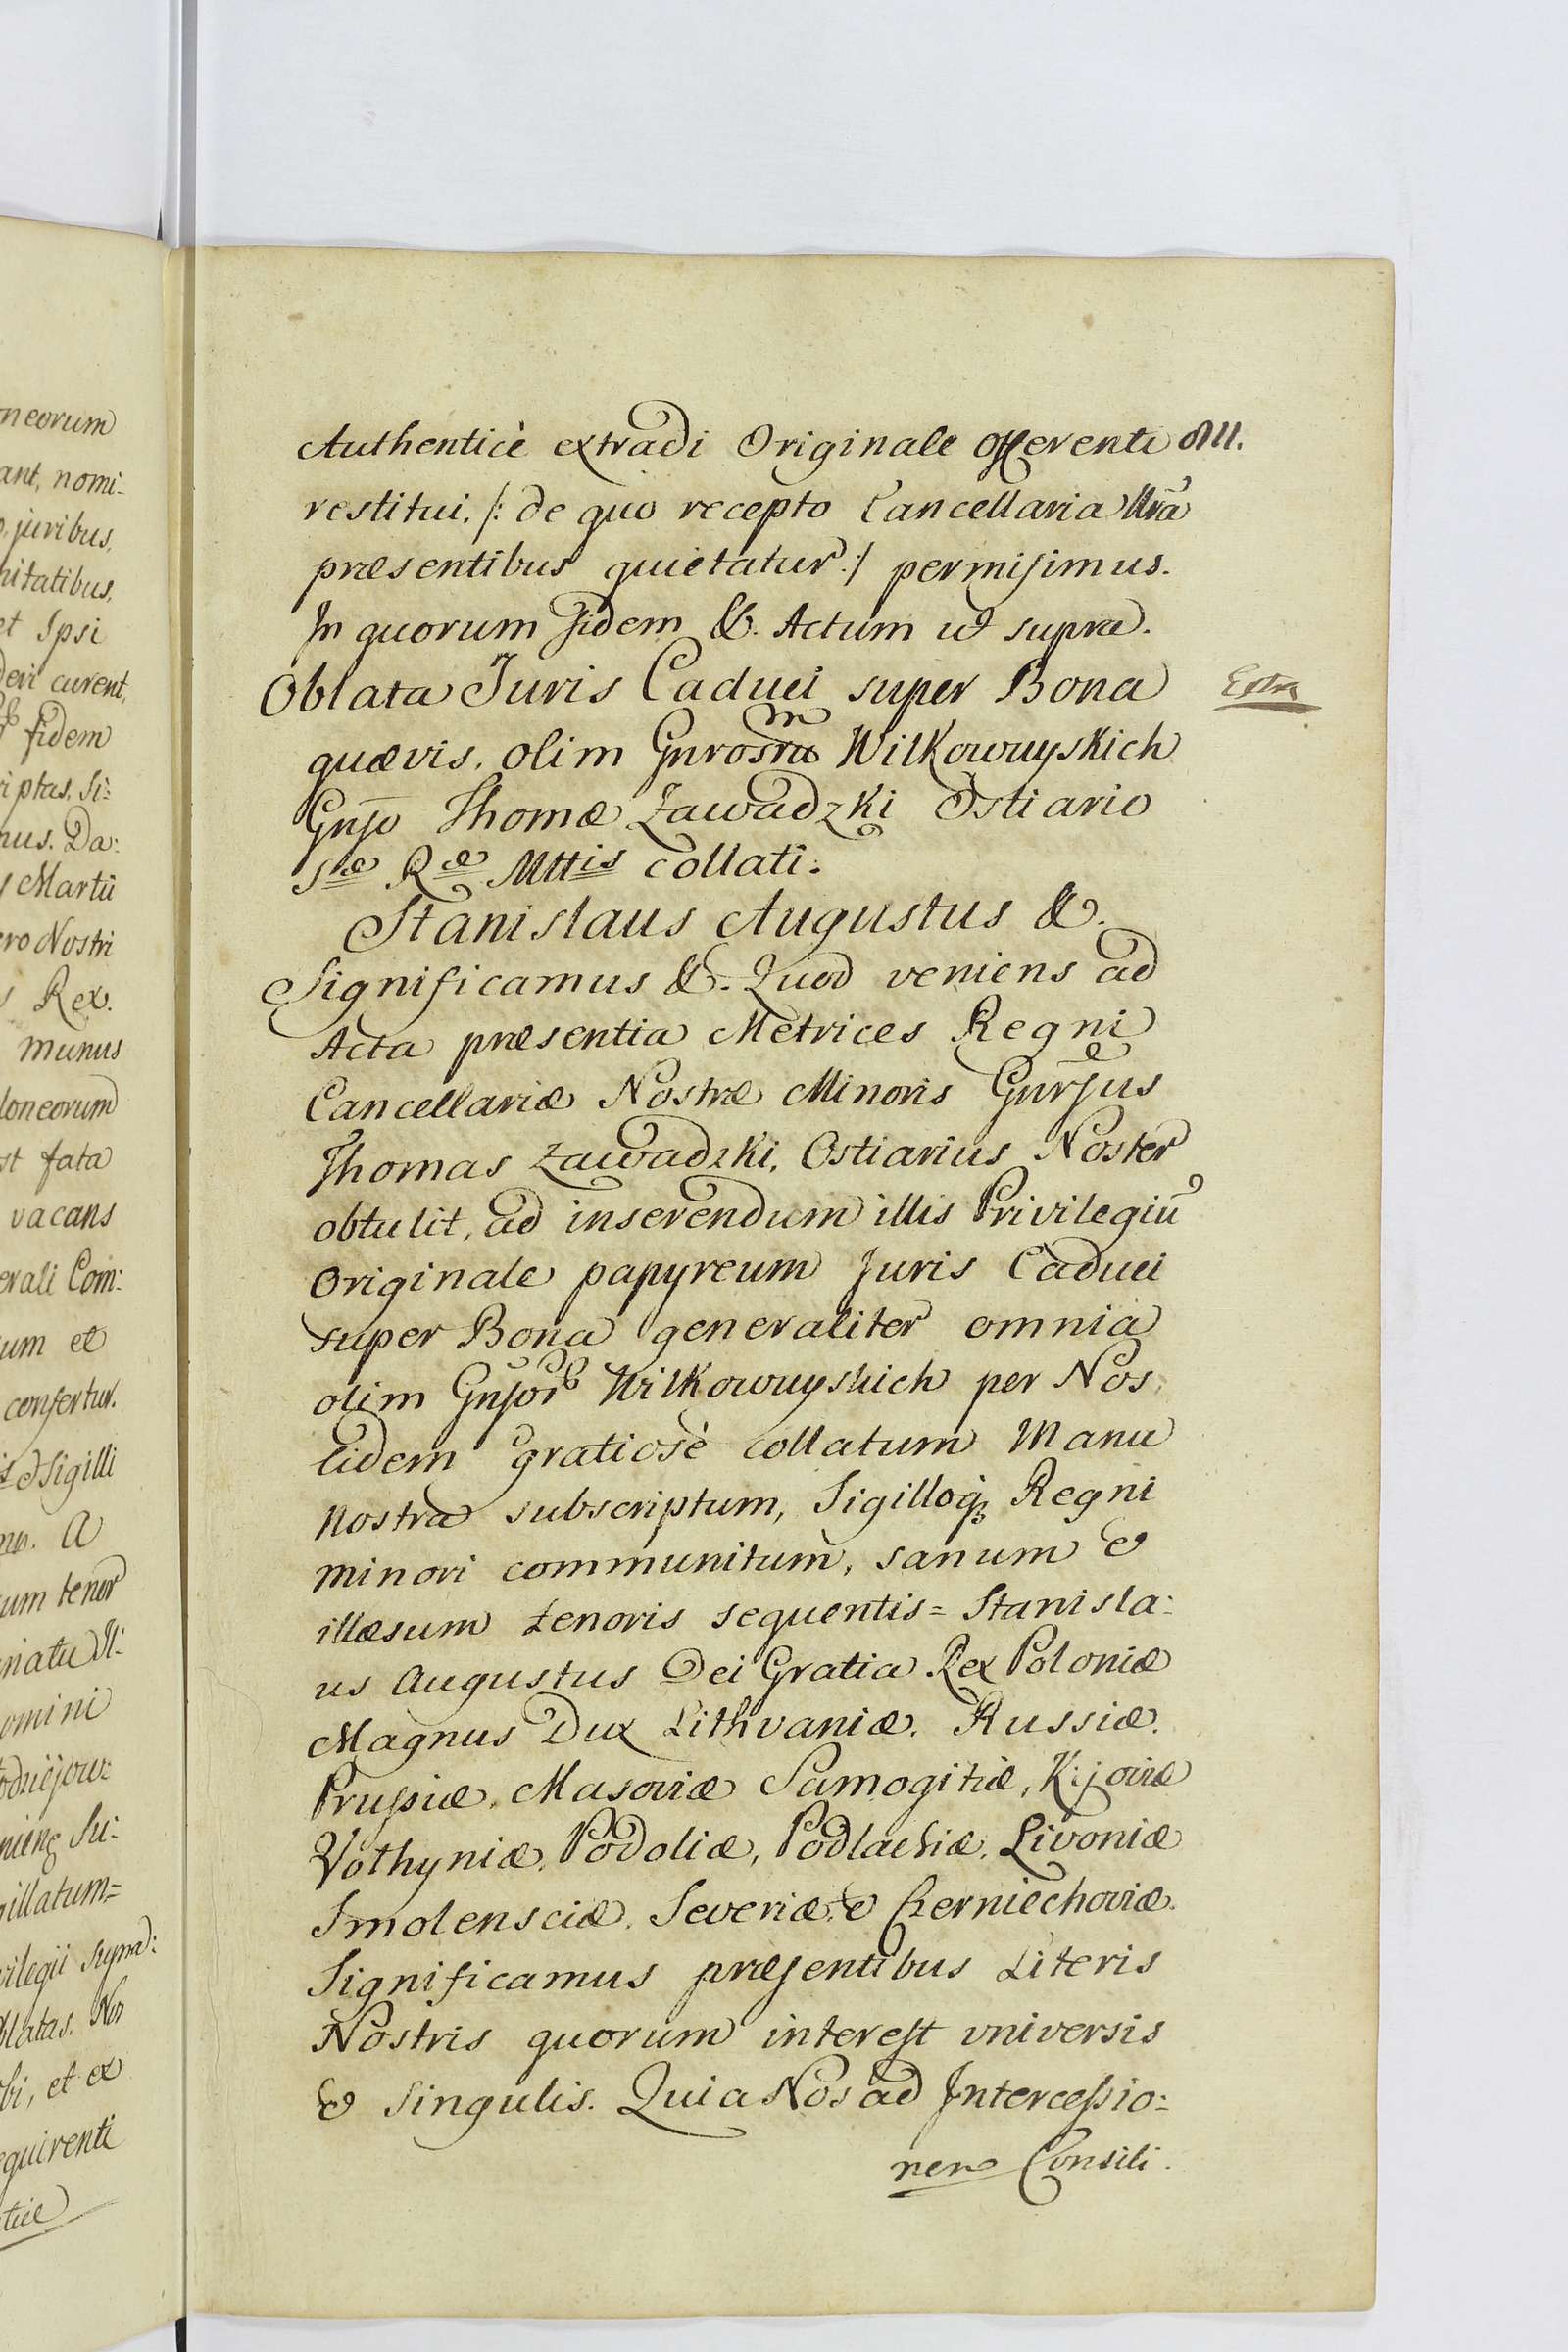 neorum
ant, nomi-
juribus,
nitatibus,
et Ipsi
deri curent,
fidem
riptas, Si:
mus. Da:
Martii
ero Nostri
Rex.
munus
loneorum
st fata
vacans
erali Com:
um et
confertur.
et Sigilli
A
um tenor
natu
omini
illatum=
vilegii
blatas. Nos
bi, et ex
equirenti
Authenticè extradi Originale offerenti
restitui. /: de quo recepto Cancellaria Nrã
præsentibus quietatur :/ permisimus.
In quorum fidem &. Actum ut supra.
Oblata Juris Caduci super Bona
quævis, olim Gnrosrum Wilkowuyskich
Gnso Thomæ Zawadzki Ostiario
Sæ Ræ Mttis collati.
Extra
Stanislaus Augustus &.
Significamus &. Quod veniens ad
Acta præsentia Metrices Regni
Cancellariæ Nostræ Minoris Gnrsus
Thomas Zawadzki, Ostiarius Noster
obtulit, ad inserendum illis Privilegiũ
Originale papyreum Juris Caduci
super Bona generaliter omnia
olim Gnsor Wilkowuyskich per Nos
Eidem gratiosè collatum Manu
Nostra subscriptum, Sigilloq; Regni
minori communitum, sanum et
illæsum tenoris sequentis = Stanisla:
us Augustus Dei Gratia Rex Poloniæ
Magnus Dux Lithvaniæ, Russiæ,
Prussiæ, Masoviæ Samogitiæ, Kijoviæ
Volhyniæ, Podoliæ, Podlachiæ, Livoniæ
Smolensciæ, Severiæ, et Czerniechoviæ.
Significamus præsentibus Literis
Nostris quorum interest universis
et singulis. Quia Nos ad Intercessio:
nem Consili.